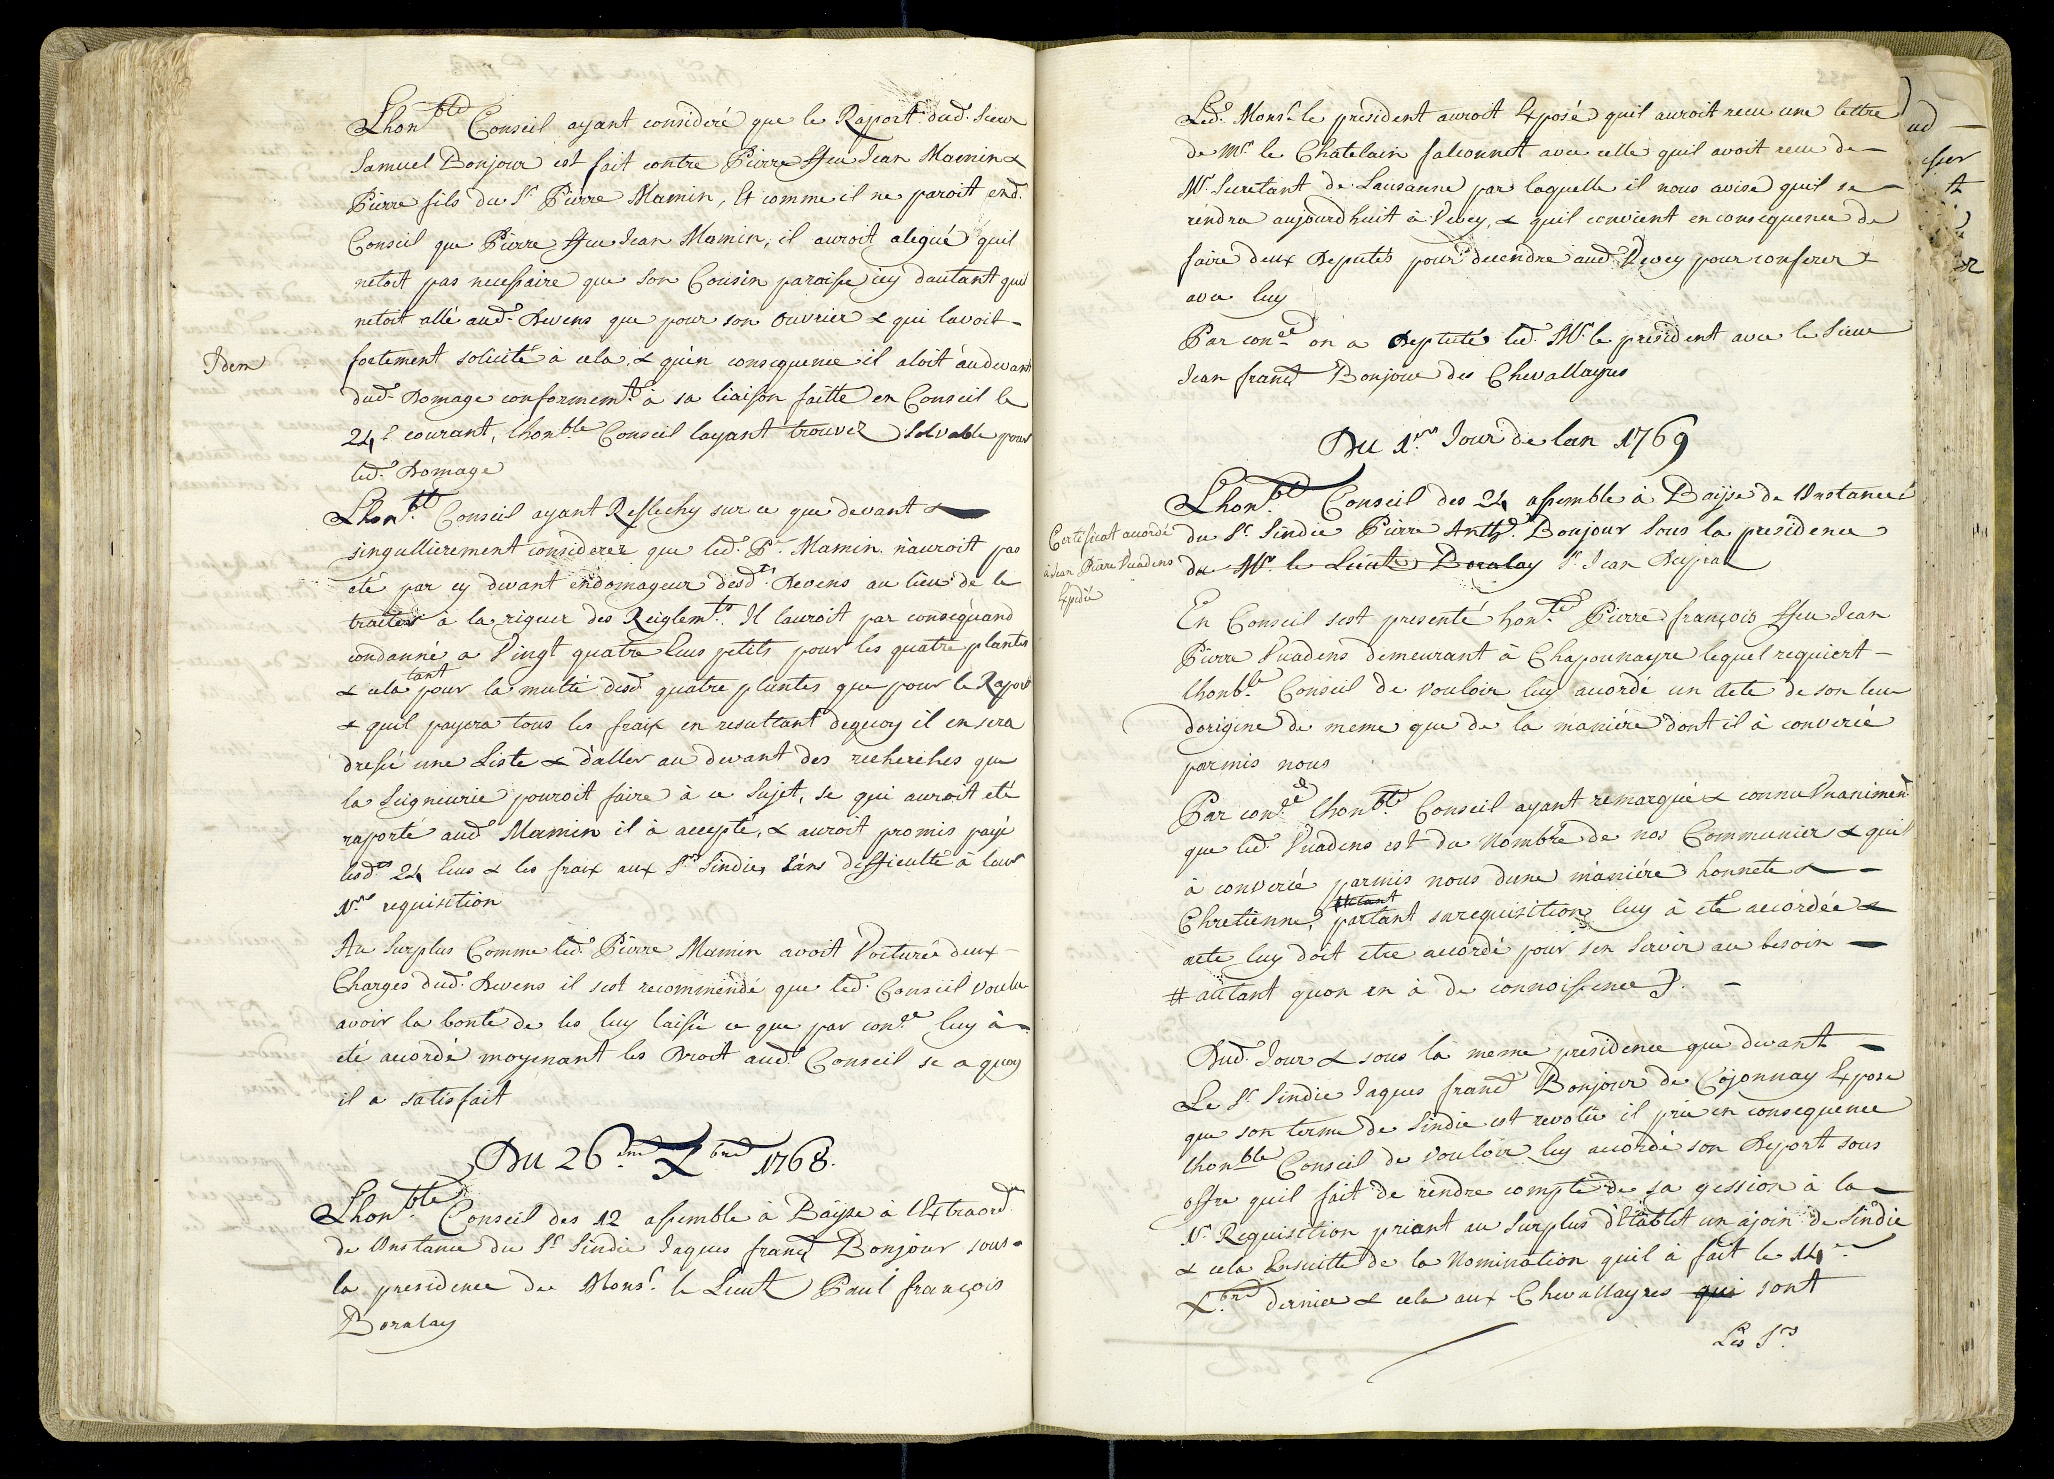 Lhon.ble Conseil ayant consideré que le Raport dud. Sieur
Samuel Bonjour est fait contre Pierre ffeu Jean Mamin &
Pierre fils du Sr. Pierre Mamin, Et comme il ne paroit end.
Conseil que Pierre ffeu Jean Mamin, il auroit alegué quil
netoit pas necessaire que son Cousin paroisse icy dautant quil
netoit allé aud. Devens que pour son Ouvrier & qui lavoit
Idem
fortement solicité à cela & quen consequence il aloit au devant
dud. Domage conformem.t à sa liaison faitte en Conseil le
24.e courant, lhon.ble Conseil layant trouvez solvable pour
led. Domage
Lhon.ble Conseil ayant Reflechy sur ce que devant &
singullierement considerez que led. Pr. Mamin nauroit pas
eté par cy devant endomageur desd.ts Devens au lieu de le
traiter à la riguer des Reiglem.ts Il lauroit par consequand
condanné a Vingt quatre Ecus petits pour les quatre plantes
& cela tant pour la multe desd. quatre plantes que pour le Raport
& quil payera tous les fraix en resultant dequoy il en sera
dressé une Liste & d'aller au devant des recherches que
la Seigneurie pouroit faire à ce Sujet, se qui auroit eté
raporté aud. Mamin il à accepté, & auroit promis payé
lesd.ts 24 Ecus & les fraix aux Srs. Sindics sans difficulté à leur
1.re requisition
Au Surplus Comme led. Pierre Mamin avoit Voituré deux
Charges dud. Devens il sest recommendé que led. Conseil voulu
avoir la bonté de les luy laissé ce que par con.ce luy à
eté accordé moyenant les Droit aud. Conseil se a quoy
il a satisfait
Du 26.me Xbre 1768.
Lhon.ble Conseil des 12 assemble à Baÿse à l'Extraord.
de Linstance du Sr. Sindic Jaques franç. Bonjour sous
la presidence de Mons.r le Lieut. Paul françois
Boralay
Led. Mons.r le president auroit Exposé quil auroit receu une lettre
de Mr. le Chatelain falconnet avec celle quil avoit receu de
Mr. Secretant de Lausanne par laquelle il nous avise quil se
rendra aujourdhuit à Vevey, & quil convient en consequence de
faire deux Deputés pour decendre aud. Vevey pour conferer
avec luy
Par con.ce on a Deputé led. Mr. le president avec le Sieur
Jean franç. Bonjour des Chevallayres
Du 1.er Jour de lan 1769
Lhon.ble Conseil des 24 assemble à Baÿse de Linstance
Certificat accordé
à Jean Pierre Vuadens
Expedié
du Sr. Sindic Pierre Anth.e Bonjour Sous la presidence
du Mr. le Lieut. Boralay Sr. Jean Dupraz
En Conseil sest presenté hon.ble Pierre françois ffeu Jean
Pierre Vuadens demeurant à Chapounayre lequel requiert
lhonb.le Conseil de vouloir luy acordé un acte de son lieu
dorigine de meme que de la maniére dont il à convercé
parmis nous
Par con.ce lhon.ble Conseil ayant remarqué & connu Vnanimem.
que led. Vuadens est du Nombre de nos Communier & quil
à convercé parmis nous dune maniére honnete &
Chretienne, # partant sa requisition luy à eté accordée &
acte luy doit etre accordé pour sen servir au besoin
# autant quon en à de connoissence).
Dud. Jour & sous la meme presidence que devant
Le Sr. Sindic Jaques franç. Bonjour de Cojonnay Expose
que son terme de Sindic est revolu il prie en consequence
lhon.ble Conseil de vouloir luy accordé son Deport sous
offre quil fait de rendre compte de sa gession à la
1.e Requisition priant au Surplus d'Etablit un ajoin de Sindic
& cela Ensuitte de la Nomination quil à fait le 14.e
X.bre dernier & cela aux Chevallayres qui sont
Les Srs.